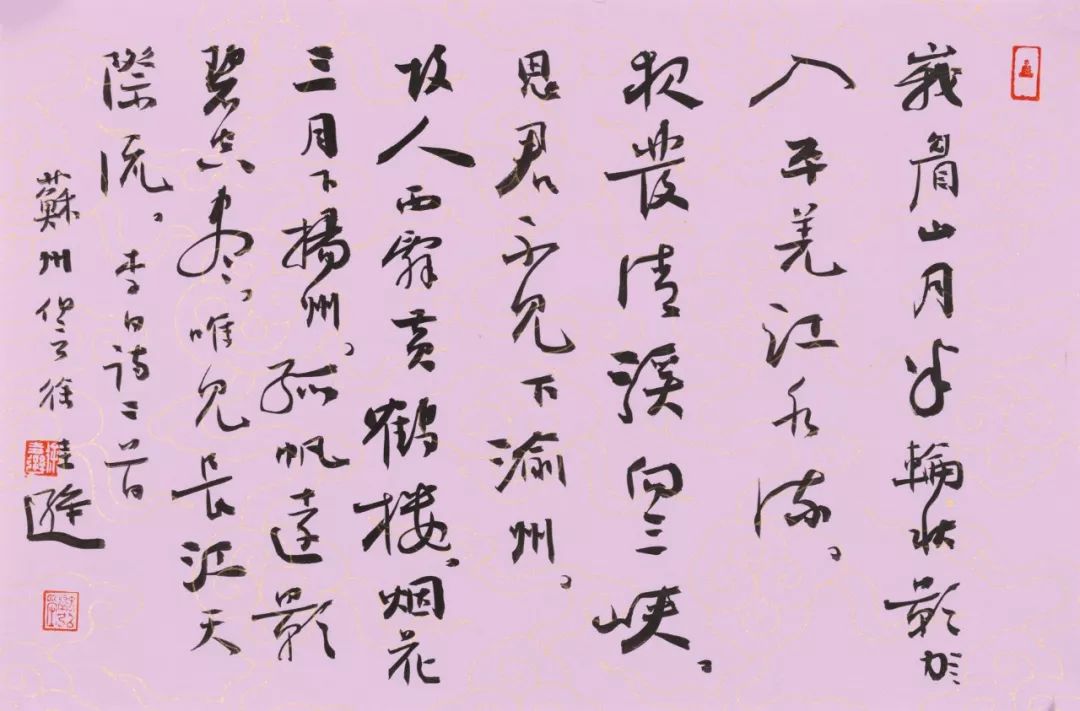 峩眉山月半輪秋影
入平羌江水流。
夜發清溪向三峽。
思君不見下渝州。
故人西辭黄鶴楼。烟花
三月下揚州。孤帆遠影
碧空尽。唯見長江天
際流。李白詩二首
蘇州徐